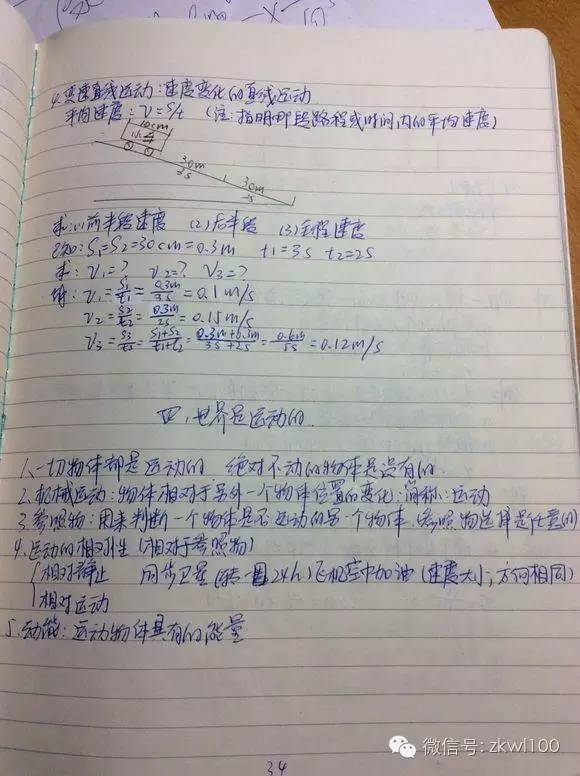 4.变速直线运动:速度变化的直线运动
平均速度:v=S/t (注:指明那段路程或时间内的平均速度)
10cm
小车
30m
3s
30m
2s
求:(1)前半段速度 (2)后半段 (3)全程速度
已知:S₁=S₂=30cm=0.3m t₁=3s t₂=2s
求:v₁=? v₂=? v₃=?
解:v₁=S₁/t₁=0.3m/3s=0.1m/s
v₂=S₂/t₂=0.3m/2s=0.15m/s
v₃=S₃/t₃=S₁+S₂/t₁+t₂=0.3m+0.3m/3s+2s=0.6m/5s=0.12m/s
四、世界是运动的
1.一切物体都是运动的 绝对不动的物体是没有的
2.机械运动:物体相对于另外一个物体位置的变化;简称:运动
3.参照物:用来判断一个物体是否运动的另一个物体.(参照物选择是任意的)
4.运动的相对性(相对于参照物)
相对静止 同步卫星(转一圈24h)飞机空中加油(速度大小,方向相同)
相对运动
5.动能:运动物体具有的能量
微信号:zkwl100
34